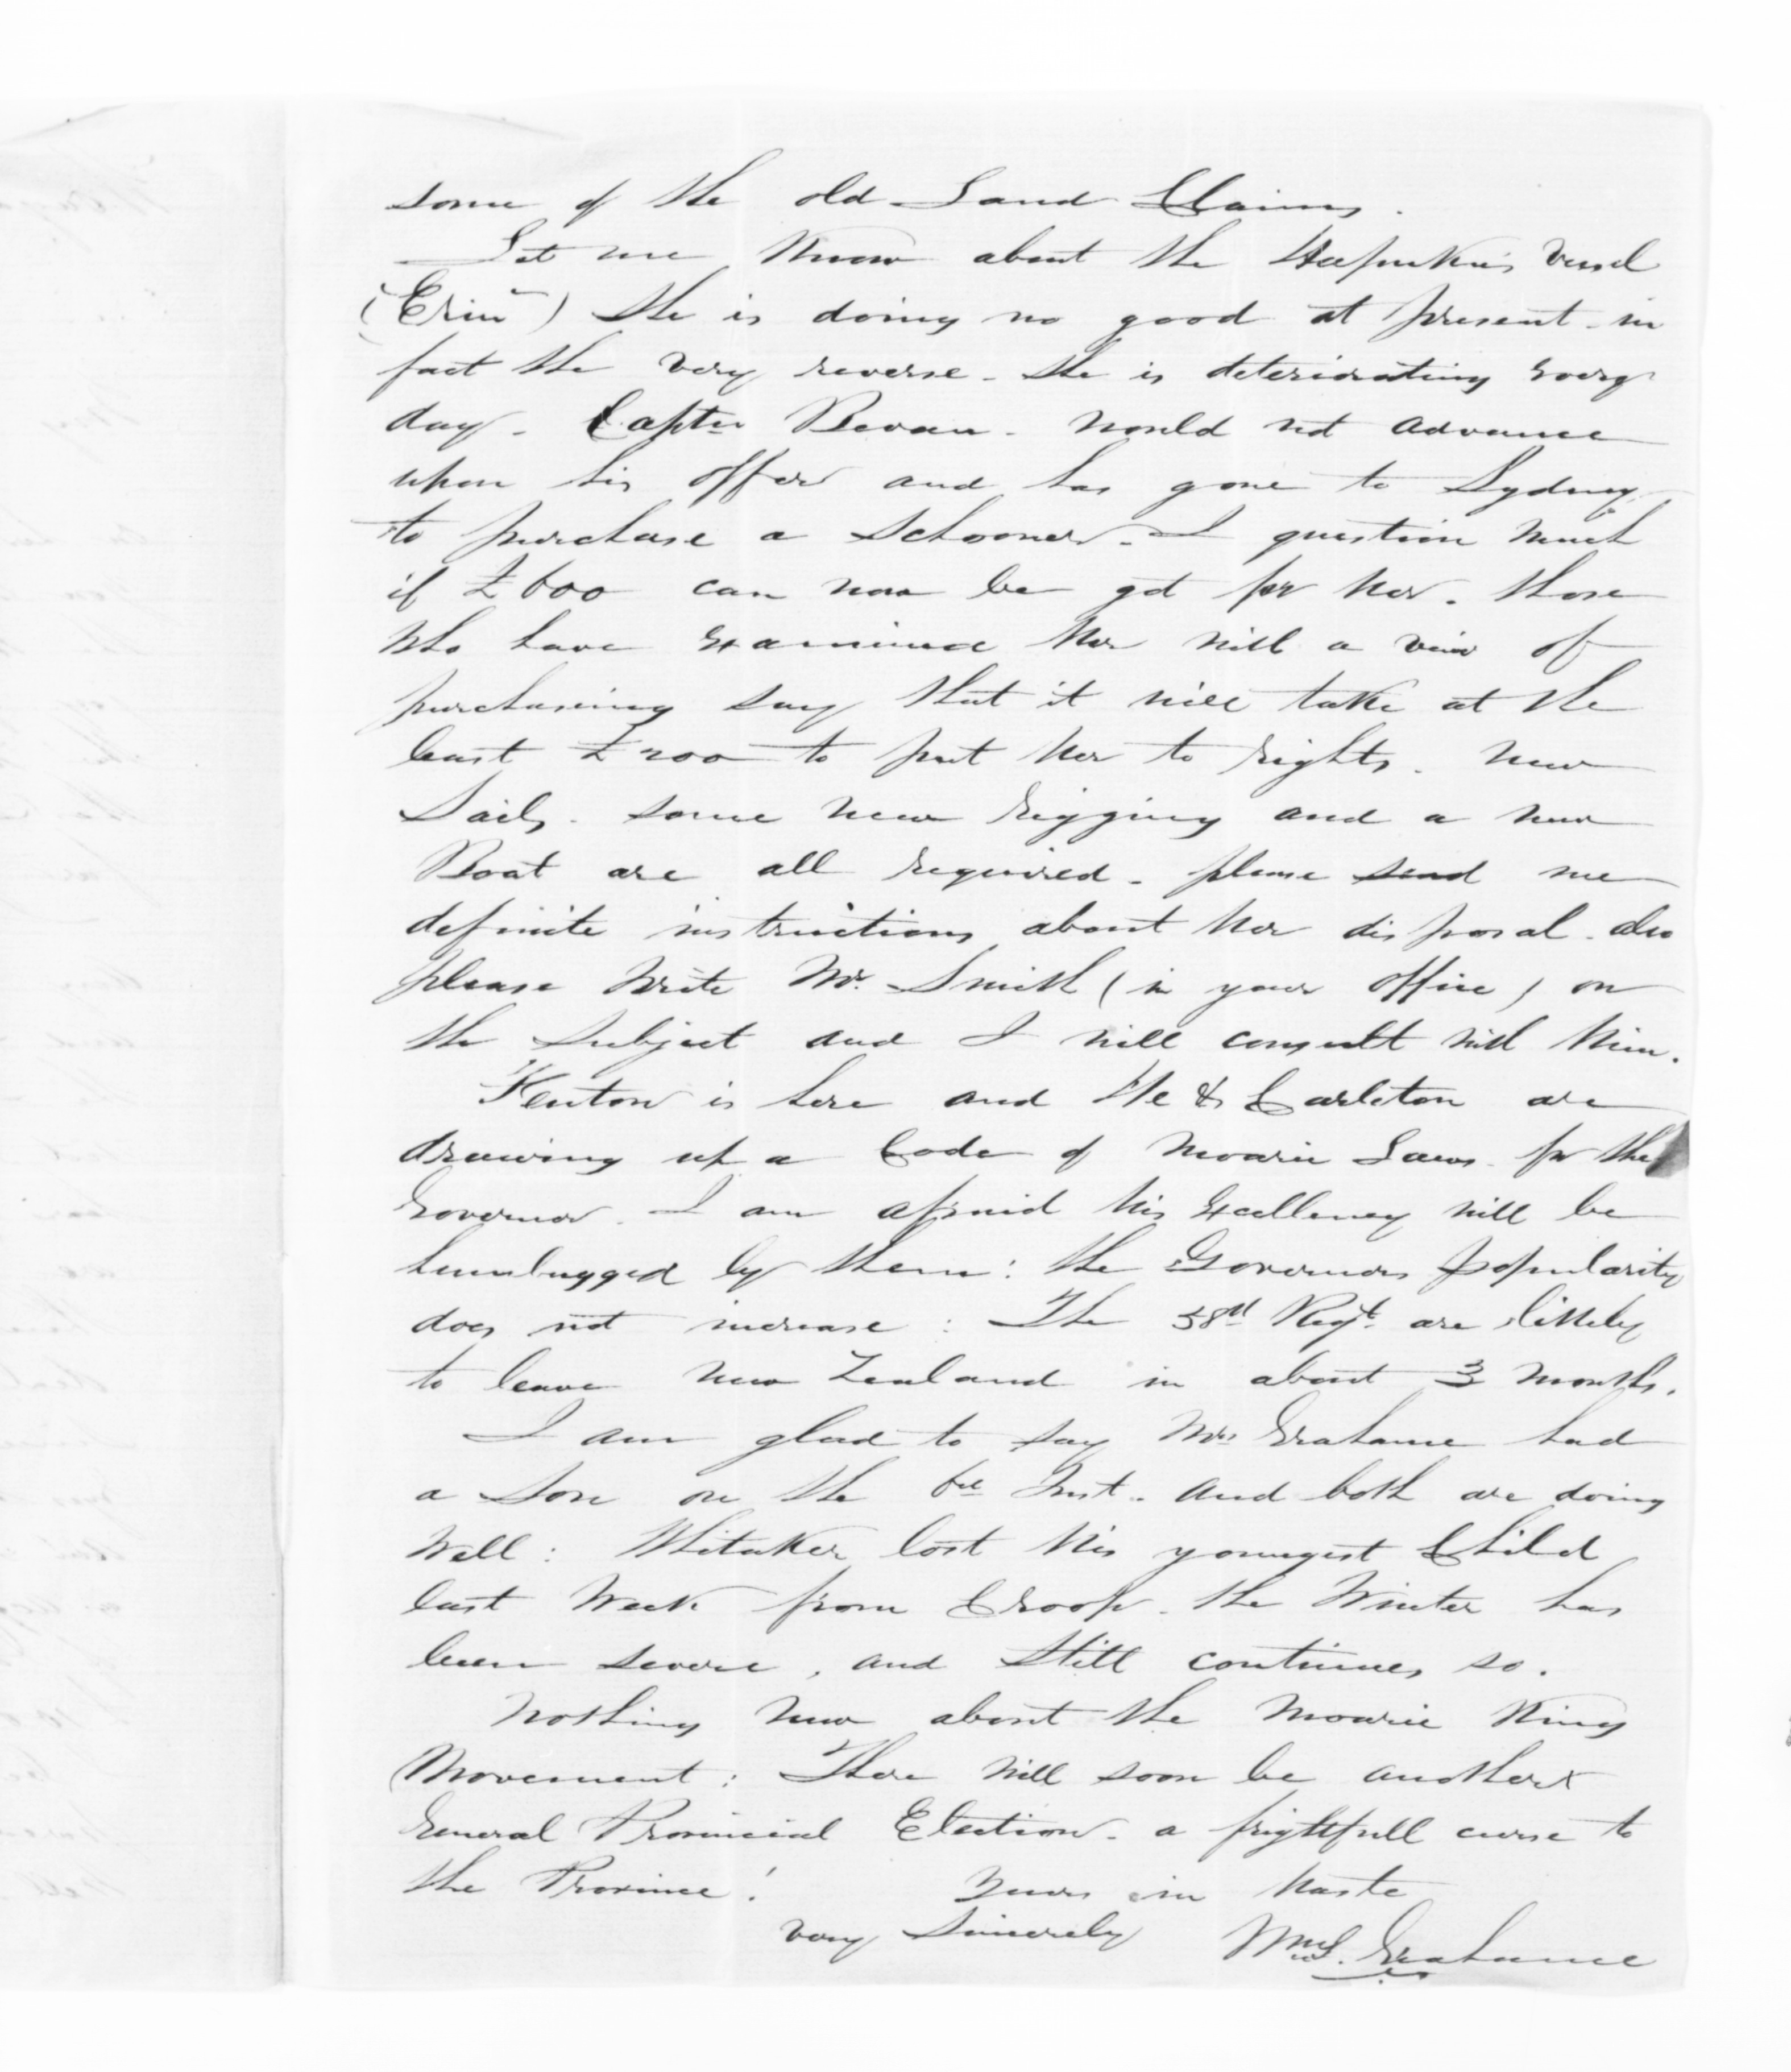 some of the old Land Claims.
Let me know about the Hapuku's vessel
("Erin") she is doing no good at present - in
fact the very reverse - she is deteriorating every
day - Captn Bevan - would not advance
upon his offer and has gone to Sydney
to purchase a Schooner - I question much
if £600 can now be got for her. those
who have examined her with a view of
purchasing say that it will take at the
least £200 to put her to rights. New
Sails - some new rigging and a new
Boat are all required - please send me
definite instructions about her disposal - also
please write Mr. Smith (in your office) on
the subject and I will consult with him.
Fenton is here and He & Carleton are
drawing up a Code of Moarie Laws - for the
Governor. I am afraid his Excellency will be
humbugged by them: the Governors popularity
does not increase: The 58th Regt. are likely
to leave New Zealand in about 3 months.
I am glad to say Mrs Grahame had
a Son on the 6th Inst. and both are doing
well: Whitaker lost his youngest Child
last week from Croop - the Winter has
been severe, and still continues so.
Nothing new about the Moarie King
Movement: There will soon be another
General Provincial Election - a frightfull curse to
the Province!  Yours in haste
very Sincerely  Wm S. Grahame